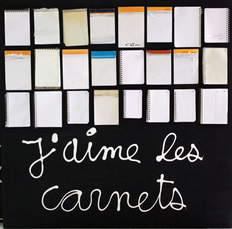 J'aime les
carnets